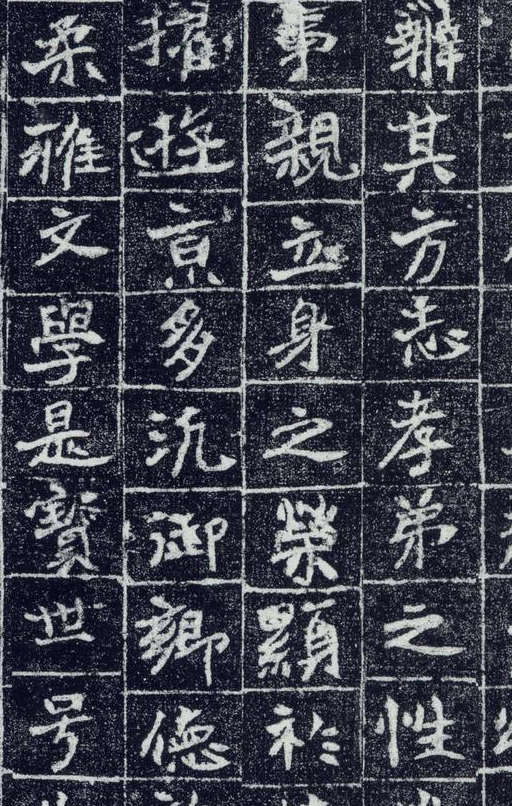 其方志孝弟之性
事親立身之榮顯於
擢遊京多御鄉德
柔雅文學是寶世号